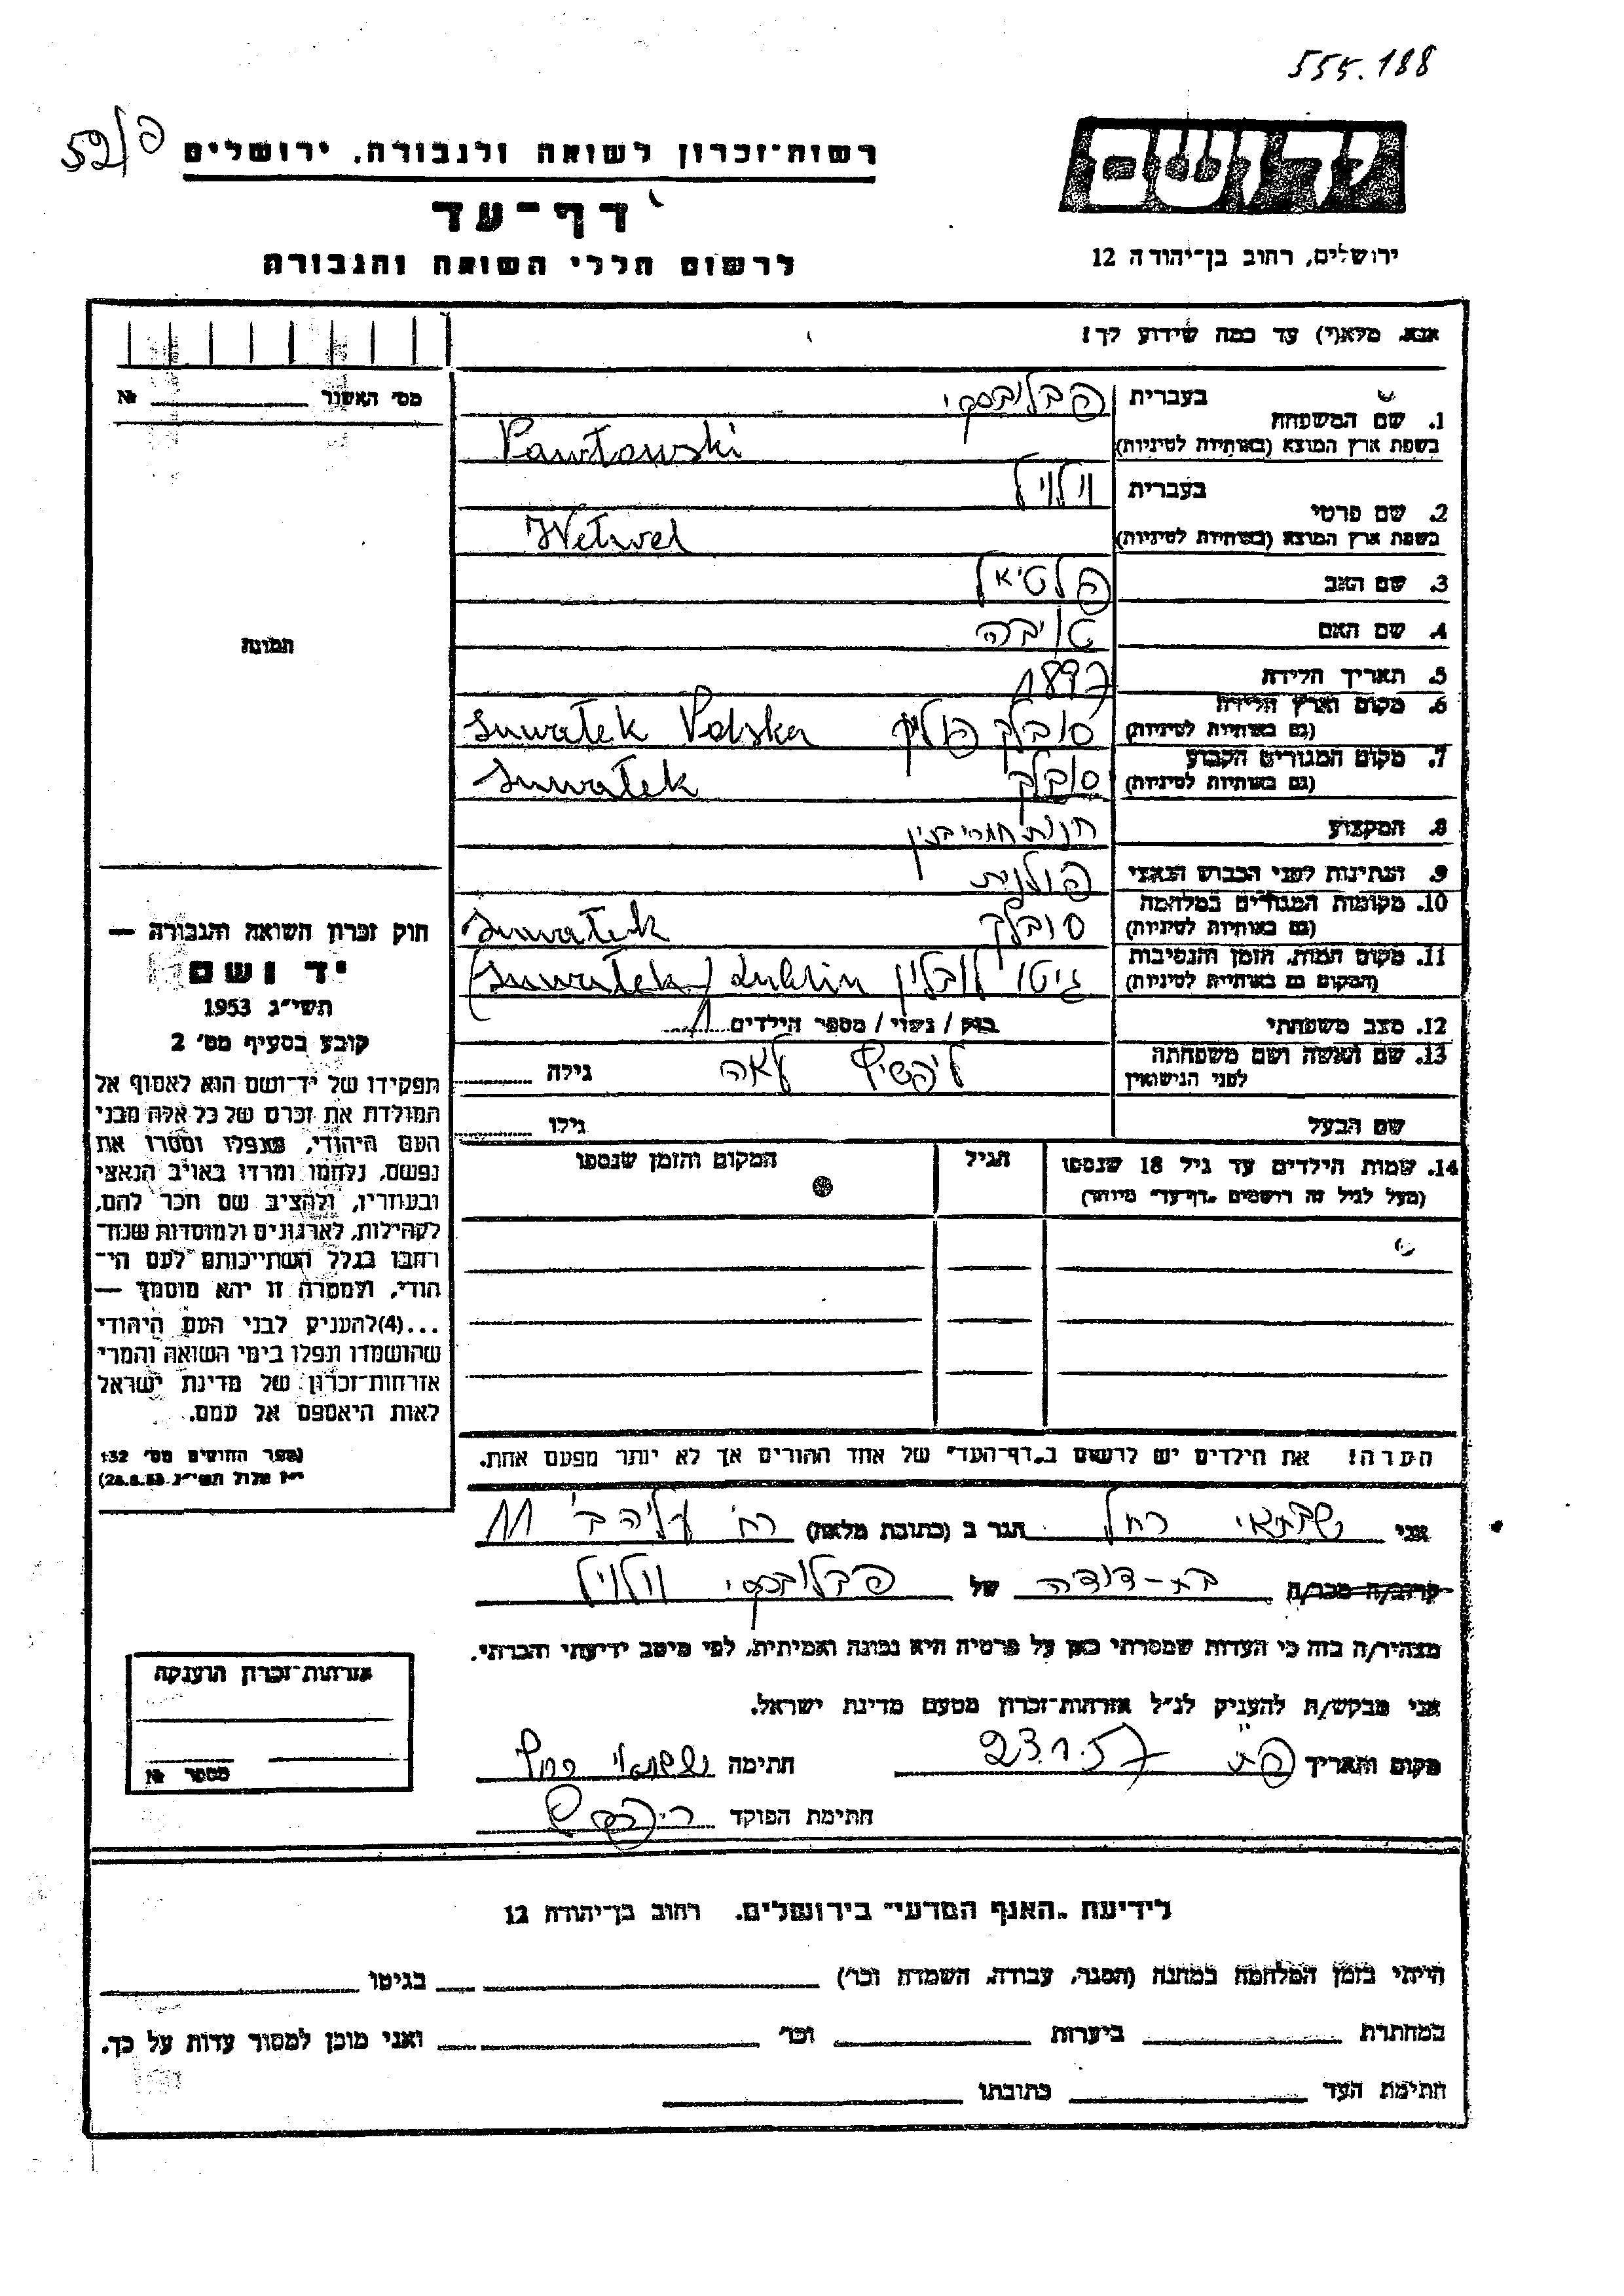 555.188
52/פ
רשות־זכרון לשואה ולגבורה. ירושלים
דף־עד
לרשום חללי השואה והגבורה
יד ושם
ירושלים, רחוב בן־יהודה 12
אנא. מלא(י) עד כמה שידוע לך!
מס' האשור № 
1. שם המשפחה בעברית פבלובסקי
בשפת ארץ המוצא (באותיות לטיניות) Pawłowski
2. שם פרטי בעברית וולויל
בשפת ארץ המוצא (באותיות לטיניות) Welwel
3. שם האב פלטיאל
4. שם האם טויבה
5. תאריך הלידה 1897
6. מקום וארץ הלידה (גם באותיות לטיניות) סובלק פולין Suwałek Polska
7. מקום המגורים הקבוע (גם באותיות לטיניות) סובלק Suwałek
8. המקצוע חנות חמרי בנין
9. הנתינות לפני הכבוש הנאצי פולנית
10. מקומות המגורים במלחמה (גם באותיות לטיניות) סובלק Suwałek
11. מקום המות, הזמן והנסיבות (המקום גם באותיות לטיניות) גיטו לובלין Lublin (Suwałek)
12. מצב משפחתי רווק / נשוי / מספר הילדים 1
13. שם האשה ושם משפחתה לפני הנישואין ליפשיץ לאה גילה
שם הבעל גילו
14. שמות הילדים עד גיל 18 שנספו הגיל המקום והזמן שנספו
(מעל לגיל זה רושמים „דף־עד" מיוחד)
תמונה
חוק זכרון השואה והגבורה —
יד ושם
תשי"ג 1953
קובע בסעיף מס' 2
תפקידו של יד־ושם הוא לאסוף אל
המולדת את זכרם של כל אלה מבני
העם היהודי, שנפלו ומסרו את
נפשם, נלחמו ומרדו באויב הנאצי
ובעוזריו, ולהציב שם וזכר להם,
לקהילות, לארגונים ולמוסדות שנח־
רחבו בגלל השתייכותם לעם הי־
הודי, ולמטרה זו יהא מוסמך —
...(4)להעניק לבני העם היהודי
שהושמדו ונפלו בימי השואה והמרי
אזרחות־זכרון של מדינת ישראל
לאות היאספם אל עמם.
(ספר החוקים מס' 132
י"ז אלול תשי"ג 28.8.53)
הערה! את הילדים יש לרשום ב„דף־העד" של אחד ההורים אך לא יותר מפעם אחת.
אני שבתאי רחל הגר ב (כתובת מלאה) רח' עליה ב' 11
קרוב/ה מכר/ה בת-דודה של פבלובסקי וולויל
מצהיר/ה בזה כי העדות שמסרתי כאן על פרטיה היא נכונה ואמיתית, לפי מיטב ידיעתי והכרתי.
אני מבקש/ת להעניק לנ"ל אזרחות־זכרון מטעם מדינת ישראל.
מקום ותאריך פ"ת 23.1.57 חתימה שבתאי רחל
חתימת הפוקד
אזרחות־זכרון הוענקה
מספר №
לידיעת „האגף המדעי" בירושלים. רחוב בן־יהודה 12
הייתי בזמן המלחמה במחנה (הסגר, עבודה, השמדה וכו') בגיטו
במחתרת ביערות וכו' ואני מוכן למסור עדות על כך.
חתימת העד כתובתו